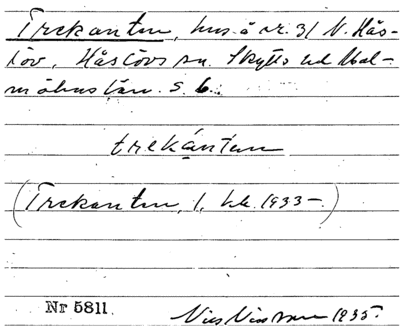 Trekanten, hus å nr. 31 V. Hås-
löv, Håslövs sn. Skytts hd Mal-
möhus län. S. 6.
trekánten
(Trekanten, l. hk. 1933-)
Nr 5811.
Nils Nilsson 1935.